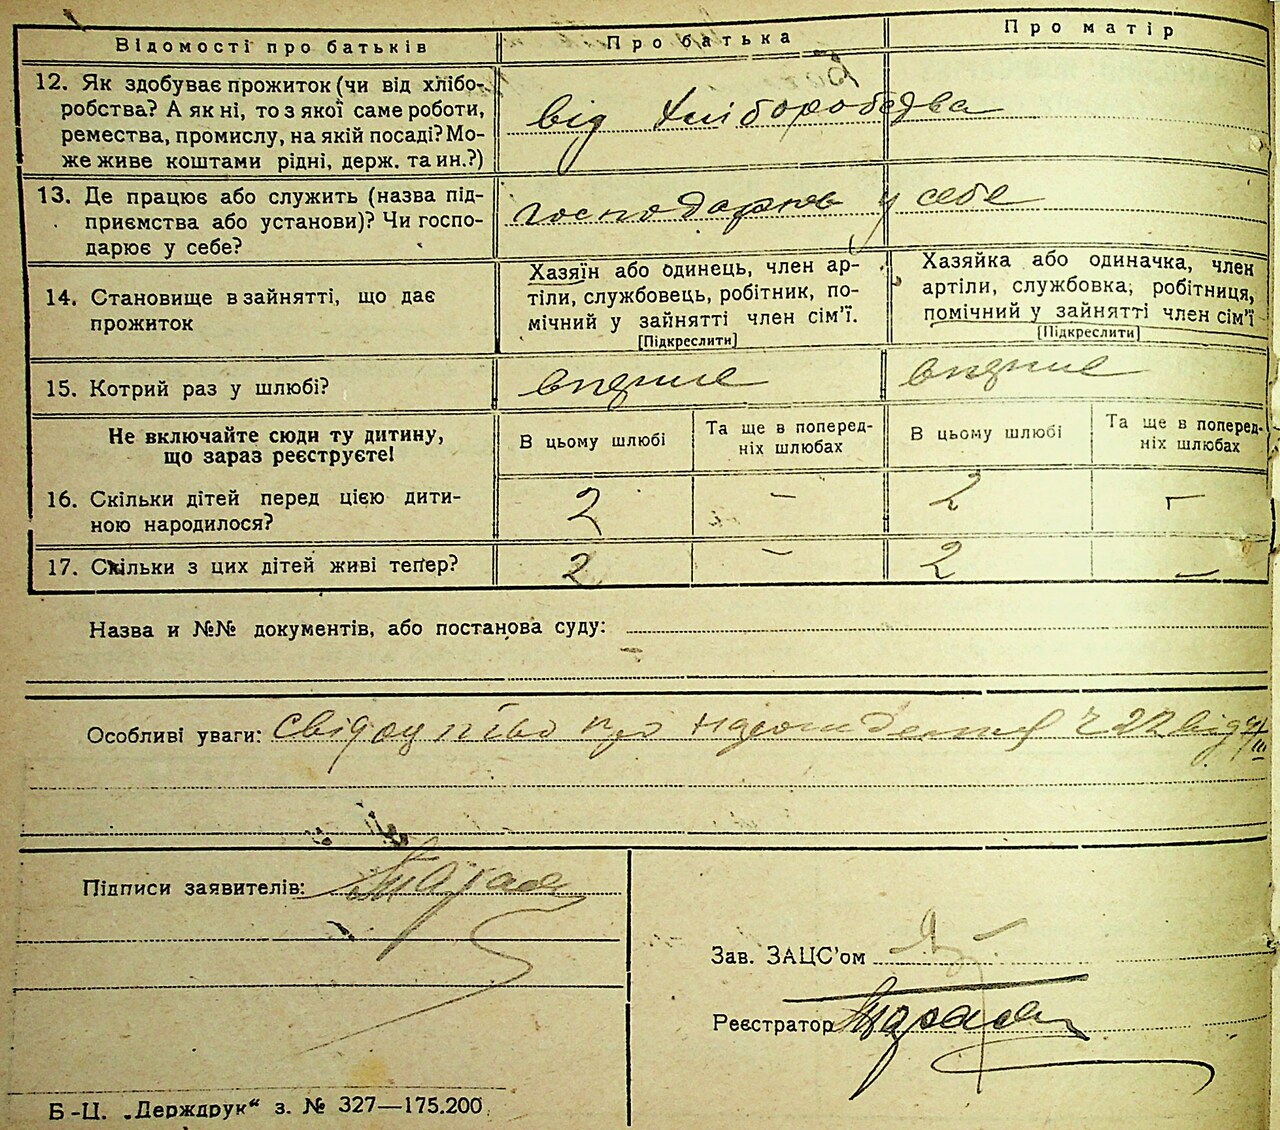 Відомості про батьків
Про батька
Про матір
12. Як здобуває прожиток (чи від хлібо-
робства? А як ні, то з якої саме роботи,
ремества, промислу, на якій посаді? Мо-
же живе коштами рідні, держ. та ин.?)
від хліборобства
13. Де працює або служить (назва під-
приємства або установи)? Чи госпо-
дарює у себе?
господарює у себе
14. Становище в зайнятті, що дає
прожиток
Хазяїн або одинець, член ар-
тіли, службовець, робітник, по-
мічний у зайнятті член сім'ї.
[Підкреслити]
Хазяйка або одиначка, член
артіли, службовка, робітниця,
помічний у зайнятті член сім'ї
[Підкреслити]
15. Котрий раз у шлюбі?
вперше
вперше
Не включайте сюди ту дитину,
що зараз реєструєте!
В цьому шлюбі
Та ще в поперед-
ніх шлюбах
В цьому шлюбі
Та ще в поперед-
ніх шлюбах
16. Скільки дітей перед цією дити-
ною народилося?
2 — 2 —
17. Скільки з цих дітей живі тепер?
2 — 2 —
Назва и №№ документів, або постанова суду:
Особливі уваги: свідоцтво про народження ч 22 від
Підписи заявителів:
Зав. ЗАЦС'ом
Реєстратор
Б-Ц. „Держдрук“ з. № 327—175.200